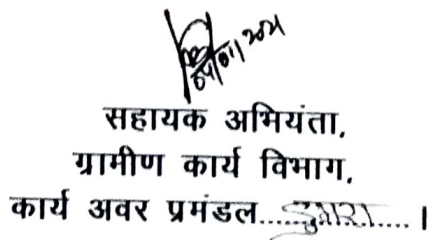 04/01/2021
सहायक अभियंता,
ग्रामीण कार्य विभाग,
कार्य अवर प्रमंडल.................।